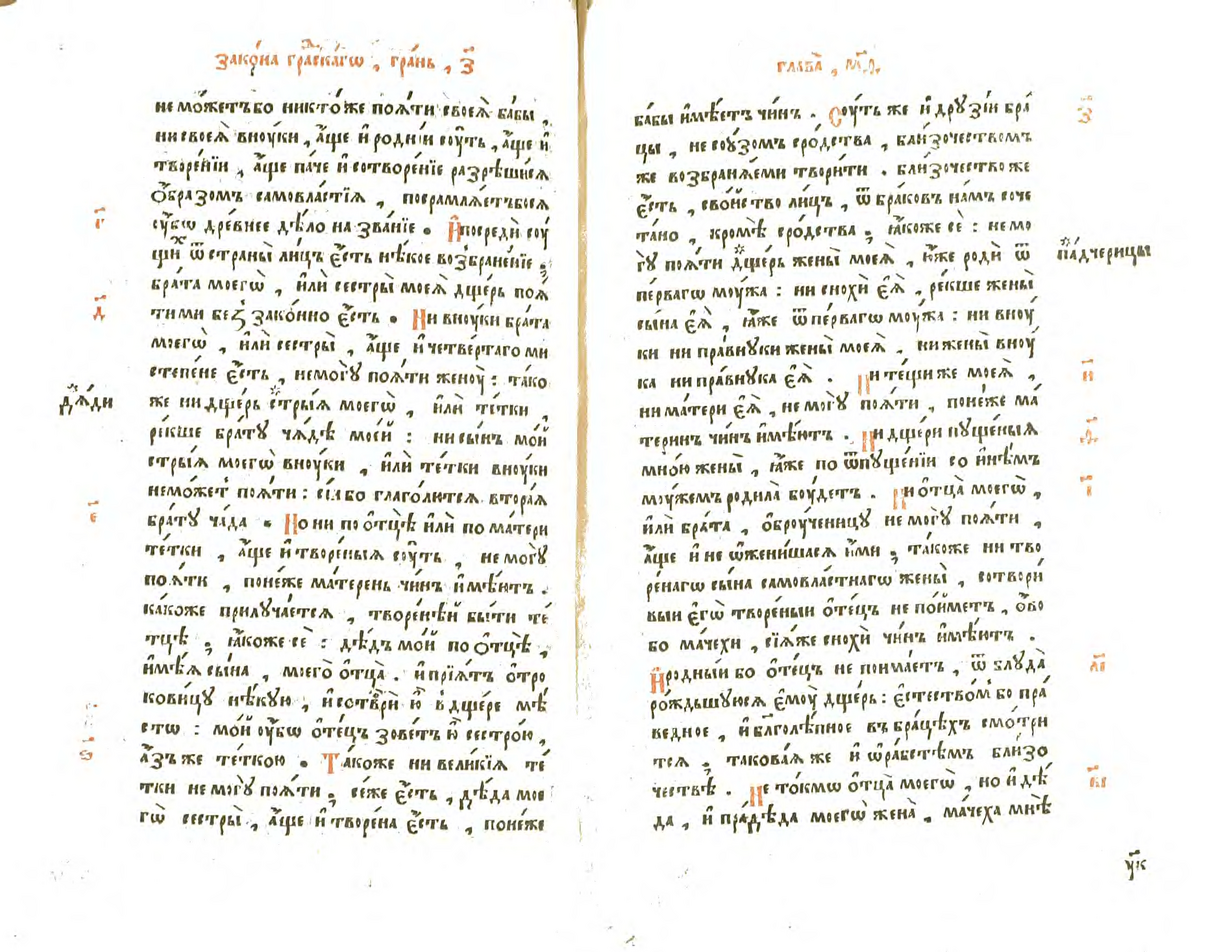 зако́на гра́дскагѡ , гра́нь , з҃
не мо́жетъ бо никто́же поѧ́ти своеѧ̀ ба́бы ,
ни своеѧ̀ вноу́ки , а҆́ще и҆ родні́и соу́ть , а҆́ще и҆
творе́нїи , а҆́ще па́че и҆ сотворе́нїе разрѣши́сѧ
ѻ҆́бразомъ самовла́стїѧ , посрамлѧ́етъбосѧ
оу҆́бѡ дре́внее дѣ́ло на зва́нїе . И҆посреди́ соу́
щих ѿ страны̀ ли́цъ є҆́сть нѣ́кое возбране́нїе .
г҃
бра́та моегѡ̀ , и҆лѝ сестры̀ моеѧ̀ дще́рь поѧ́
ти ми беѕ зако́нно є҆́сть . Ни вноу́ки бра́та
д҃
моегѡ̀ , и҆лѝ сестры̀ , а҆́ще и҆ четве́ртаго ми
степе́не є҆́сть , не могу̀ поѧ́ти женоу̀ : тако́
же ни дще́рь стры́ѧ моегѡ̀ , и҆лѝ те́тки ,
дѧ́ди
ре́кше бра́ту чѧ́дѣ мое́й : ни сы́нъ мо́й
стры́ѧ моегѡ̀ вноу́ки , и҆лѝ те́тки вноу́ки
не мо́жет поѧ́ти : сїѧ́ бо глаго́лютсѧ вто́раѧ
бра́ту ча́да . Но ни по ѻ҆тцѣ̀ и҆лѝ по ма́тери
е҃
те́тки , а҆́ще и҆ творе́ныѧ соу́ть , не могу̀
поѧ́ти , поне́же ма́терень чи́нъ и҆мѣ́ютъ .
ка́коже прилуча́етсѧ , творе́нѣй бы́ти те́
тцѣ , ꙗ҆́коже сѐ : дѣ́дъ мо́й по ѻ҆тцѣ̀ ,
и҆мѣ́ѧ сы́на , моего̀ ѻ҆тца̀ . и҆ прїѧ́тъ ѻ҆тро
кови́цу нѣ́кую , и҆ сотври́ ю҆̀ в дще́ре мѣ́
стѡ : мо́й оу҆́бѡ ѻ҆те́цъ зове́тъ ю҆̀ сестро́ю ,
а҆́зъ же те́ткою . Та́коже ни вели́кїѧ те́
ѕ҃
тки не могу̀ поѧ́ти , се́же є҆́сть , дѣ́да мое
гѡ̀ сестры̀ , а҆́ще и҆ творе́на є҆́сть , поне́же
глава̀ , м҃ѳ ,
ба́бы и҆мѣ́етъ чи́нъ . Соу́ть же и҆ друзі́и бра́
з҃
цы , не соу́зомъ сро́дства , бли́зочествомъ
же возбранѧ́еми твори́ти . бли́зочество же
є҆́сть , сво́йство ли́цъ , ѿ бра́ковъ на́мъ соче
та́но , кро́мѣ сро́дства , ꙗ҆́коже сѐ : не мо
гу̀ поѧ́ти дще́рь жены̀ моеѧ̀ , ю҆́же родѝ ѿ
па́дчерицы
пе́рвагѡ моу́жа : ни снохѝ є҆ѧ̀ , ре́кше жены̀
сы́на є҆ѧ̀ , ꙗ҆́же ѿ пе́рвагѡ моу́жа : ни вноу́
ки ни пра́внуки жены̀ моеѧ̀ , ни жены̀ вноу́
ка ни пра́внука є҆ѧ̀ . Ни те́щи же моеѧ̀ ,
и҃
ни ма́тери є҆ѧ̀ , не могу̀ поѧ́ти , поне́же ма́
теринъ чи́нъ и҆мѣ́ютъ . Ни дще́ри пуще́ныѧ
ѳ҃
мно́ю жены̀ , ꙗ҆́же по ѿпуще́нїи со и҆нѣ́мъ
моу́жемъ родила̀ боу́детъ . Ни ѻ҆тца̀ моегѡ̀ ,
і҃
и҆лѝ бра́та , ѻ҆броу́ченицу не могу̀ поѧ́ти ,
а҆́ще и҆ не ѡ҆жени́шасѧ и҆́ми , та́коже ни тво
ре́нагѡ сы́на самовла́стнагѡ жены̀ , сотвори́
выи є҆гѡ̀ творе́ныи ѻ҆те́цъ не по́йметъ , ѻ҆́во
бо ма́чехи , сїѧ́же снохѝ чи́нъ и҆мѣ́ютъ .
И҆ро́дныи бо ѻ҆те́цъ не поима́етъ , ѿ блуда̀
а҃і
ро́ждьшуюсѧ є҆моу̀ дще́рь : є҆стество́м бо пра́
ведное , и҆ бл҃голѣ́пное въ бра́цѣхъ смо́три
тсѧ , такова́ѧ же и҆ ѡ҆ ра́бстѣмъ бли́зо
че́ствѣ . Не то́кмѡ ѻ҆тца̀ моегѡ̀ , но и҆ дѣ́
в҃і
да , и҆ пра́дѣда моегѡ̀ жена̀ , ма́чеха мнѣ̀
у҃к